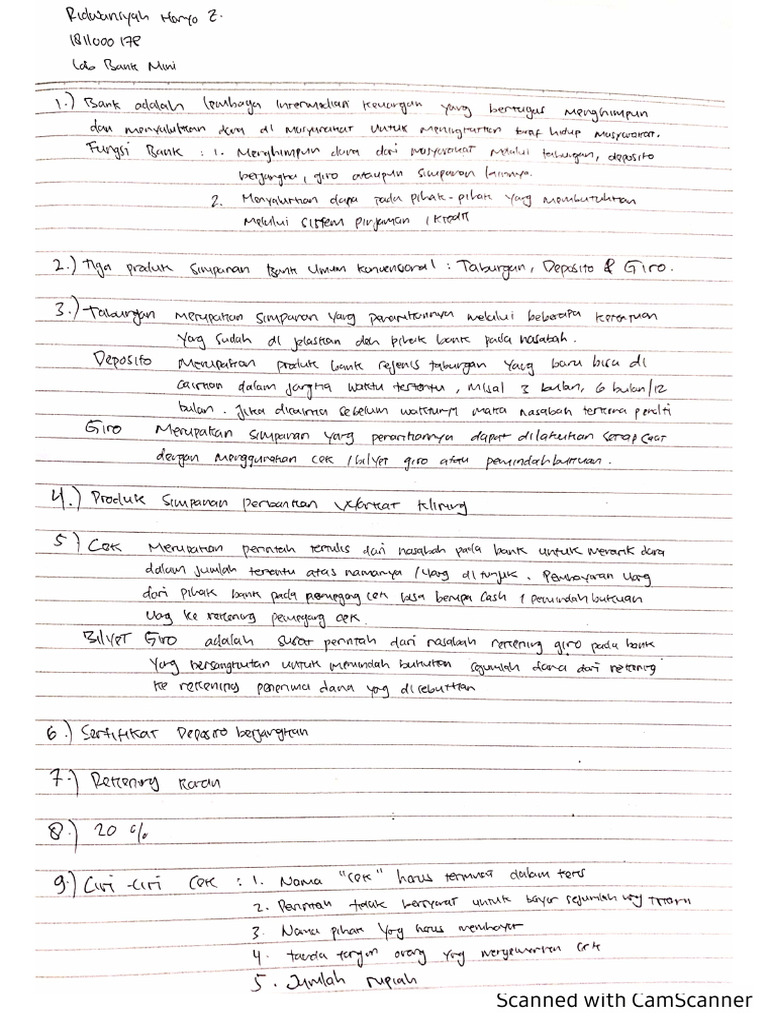 Ridwansyah Haryo Z.
1811000178
Lab Bank Mini
1.) Bank adalah lembaga Intermediari keuangan yang bertugas menghimpun
dan menyalurkan dana di masyarakat untuk meningkatkan taraf hidup masyarakat.
Fungsi Bank : 1. Menghimpun dana dari masyarakat melalui tabungan, deposito
berjangka, giro ataupun simpanan lainnya.
2. Menyalurkan dana pada pihak-pihak yang membutuhkan
melalui sistem pinjaman / kredit
2.) Tiga produk simpanan Bank Umum konvensional : Tabungan, Deposito & Giro.
3.) Tabungan merupakan simpanan yang penarikannya melalui beberapa ketentuan
yang sudah di jelaskan dari pihak bank pada nasabah.
Deposito Merupakan produk bank sejenis tabungan yang baru bisa di
cairkan dalam jangka waktu tertentu, misal 3 bulan, 6 bulan/12
bulan. Jika dicairkan sebelum waktunya maka nasabah terkena penalti
Giro Merupakan simpanan yang penarikannya dapat dilakukan setiap saat
dengan menggunakan cek / bilyet giro atau pemindahbukuan.
4.) Produk simpanan perbankan kliring
5) Cek Merupakan perintah tertulis dari nasabah pada bank untuk menarik dana
dalam jumlah tertentu atas namanya / yang ditunjuk. Pembayaran uang
dari pihak bank pada pemegang cek bisa berupa cash / pemindahbukuan
uang ke rekening pemegang cek.
Bilyet Giro adalah surat perintah dari nasabah rekening giro pada bank
yang bersangkutan untuk memindah bukukan sejumlah dana dari rekening
ke rekening penerima dana yg disebutkan
6.) Sertifikat Deposito berjangka
7.) Rekening Koran
8.) 20 %
9.) Ciri-Ciri Cek : 1. Nama "Cek" harus termuat dalam teks
2. Perintah tidak bersyarat untuk bayar sejumlah uang
3. Nama pihak yog harus membayar
4. tanda tangan orang yog mengeluarkan cek
5. Jumlah rupiah
Scanned with CamScanner